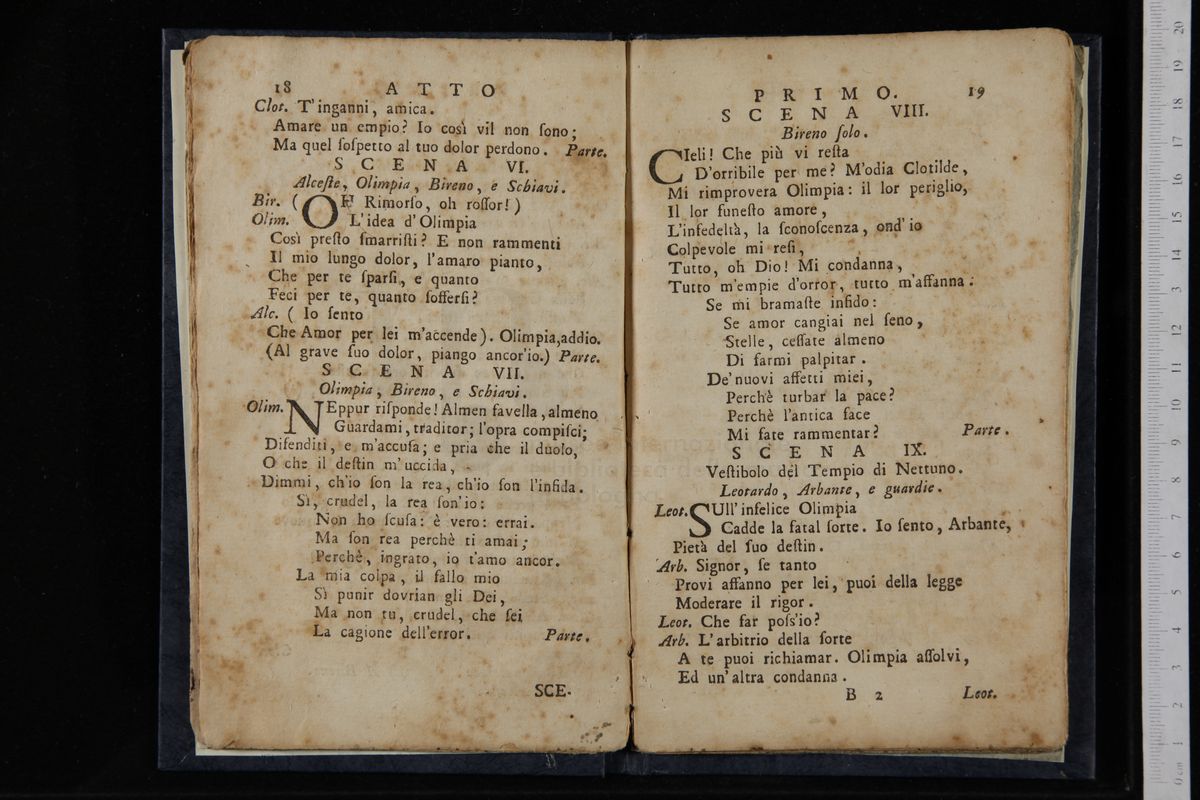 18 A T T O
Clot. T'inganni, amica.
Amare un empio? Io così vil non ſono;
Ma quel ſoſpetto al tuo dolor perdono. Parte.
S C E N A VI.
Alceſte, Olimpia, Bireno, e Schiavi.
Bir. ( OH Rimorſo, oh roſſor!)
Olim. L'idea d'Olimpia
Così preſto ſmarriſti? E non rammenti
Il mio lungo dolor, l'amaro pianto,
Che per te ſparſi, e quanto
Feci per te, quanto ſofferſi?
Alc. ( Io ſento
Che Amor per lei m'accende). Olimpia,addio.
(Al grave ſuo dolor, piango ancor'io.) Parte.
S C E N A VII.
Olimpia, Bireno, e Schiavi.
Olim. NEppur riſponde! Almen favella, almeno
Guardami, traditor; l'opra compiſci;
Difenditi, e m'accuſa; e pria che il duolo,
O che il deſtin m'uccida,
Dimmi, ch'io ſon la rea, ch'io ſon l'infida.
Sì, crudel, la rea ſon'io:
Non ho ſcuſa: è vero: errai.
Ma ſon rea perchè ti amai;
Perchè, ingrato, io t'amo ancor.
La mia colpa, il fallo mio
Sì punir dovrian gli Dei,
Ma non tu, crudel, che ſei
La cagione dell'error. Parte.
SCE-
P R I M O. 19
S C E N A VIII.
Bireno ſolo.
CIeli! Che più vi reſta
D'orribile per me? M'odia Clotilde,
Mi rimprovera Olimpia: il lor periglio,
Il lor funeſto amore,
L'infedeltà, la ſconoſcenza, ond'io
Colpevole mi reſi,
Tutto, oh Dio! Mi condanna,
Tutto m'empie d'orror, tutto m'affanna.
Se mi bramaſte infido:
Se amor cangiai nel ſeno,
Stelle, ceſſate almeno
Di farmi palpitar.
De'nuovi affetti miei,
Perchè turbar la pace?
Perchè l'antica face
Mi fate rammentar? Parte.
S C E N A IX.
Veſtibolo del Tempio di Nettuno.
Leotardo, Arbante, e guardie.
Leot. SUll'infelice Olimpia
Cadde la fatal ſorte. Io ſento, Arbante,
Pietà del ſuo deſtin.
Arb. Signor, ſe tanto
Provi affanno per lei, puoi della legge
Moderare il rigor.
Leot. Che far poſs'io?
Arb. L'arbitrio della ſorte
A te puoi richiamar. Olimpia aſſolvi,
Ed un'altra condanna.
B 2 Leot.